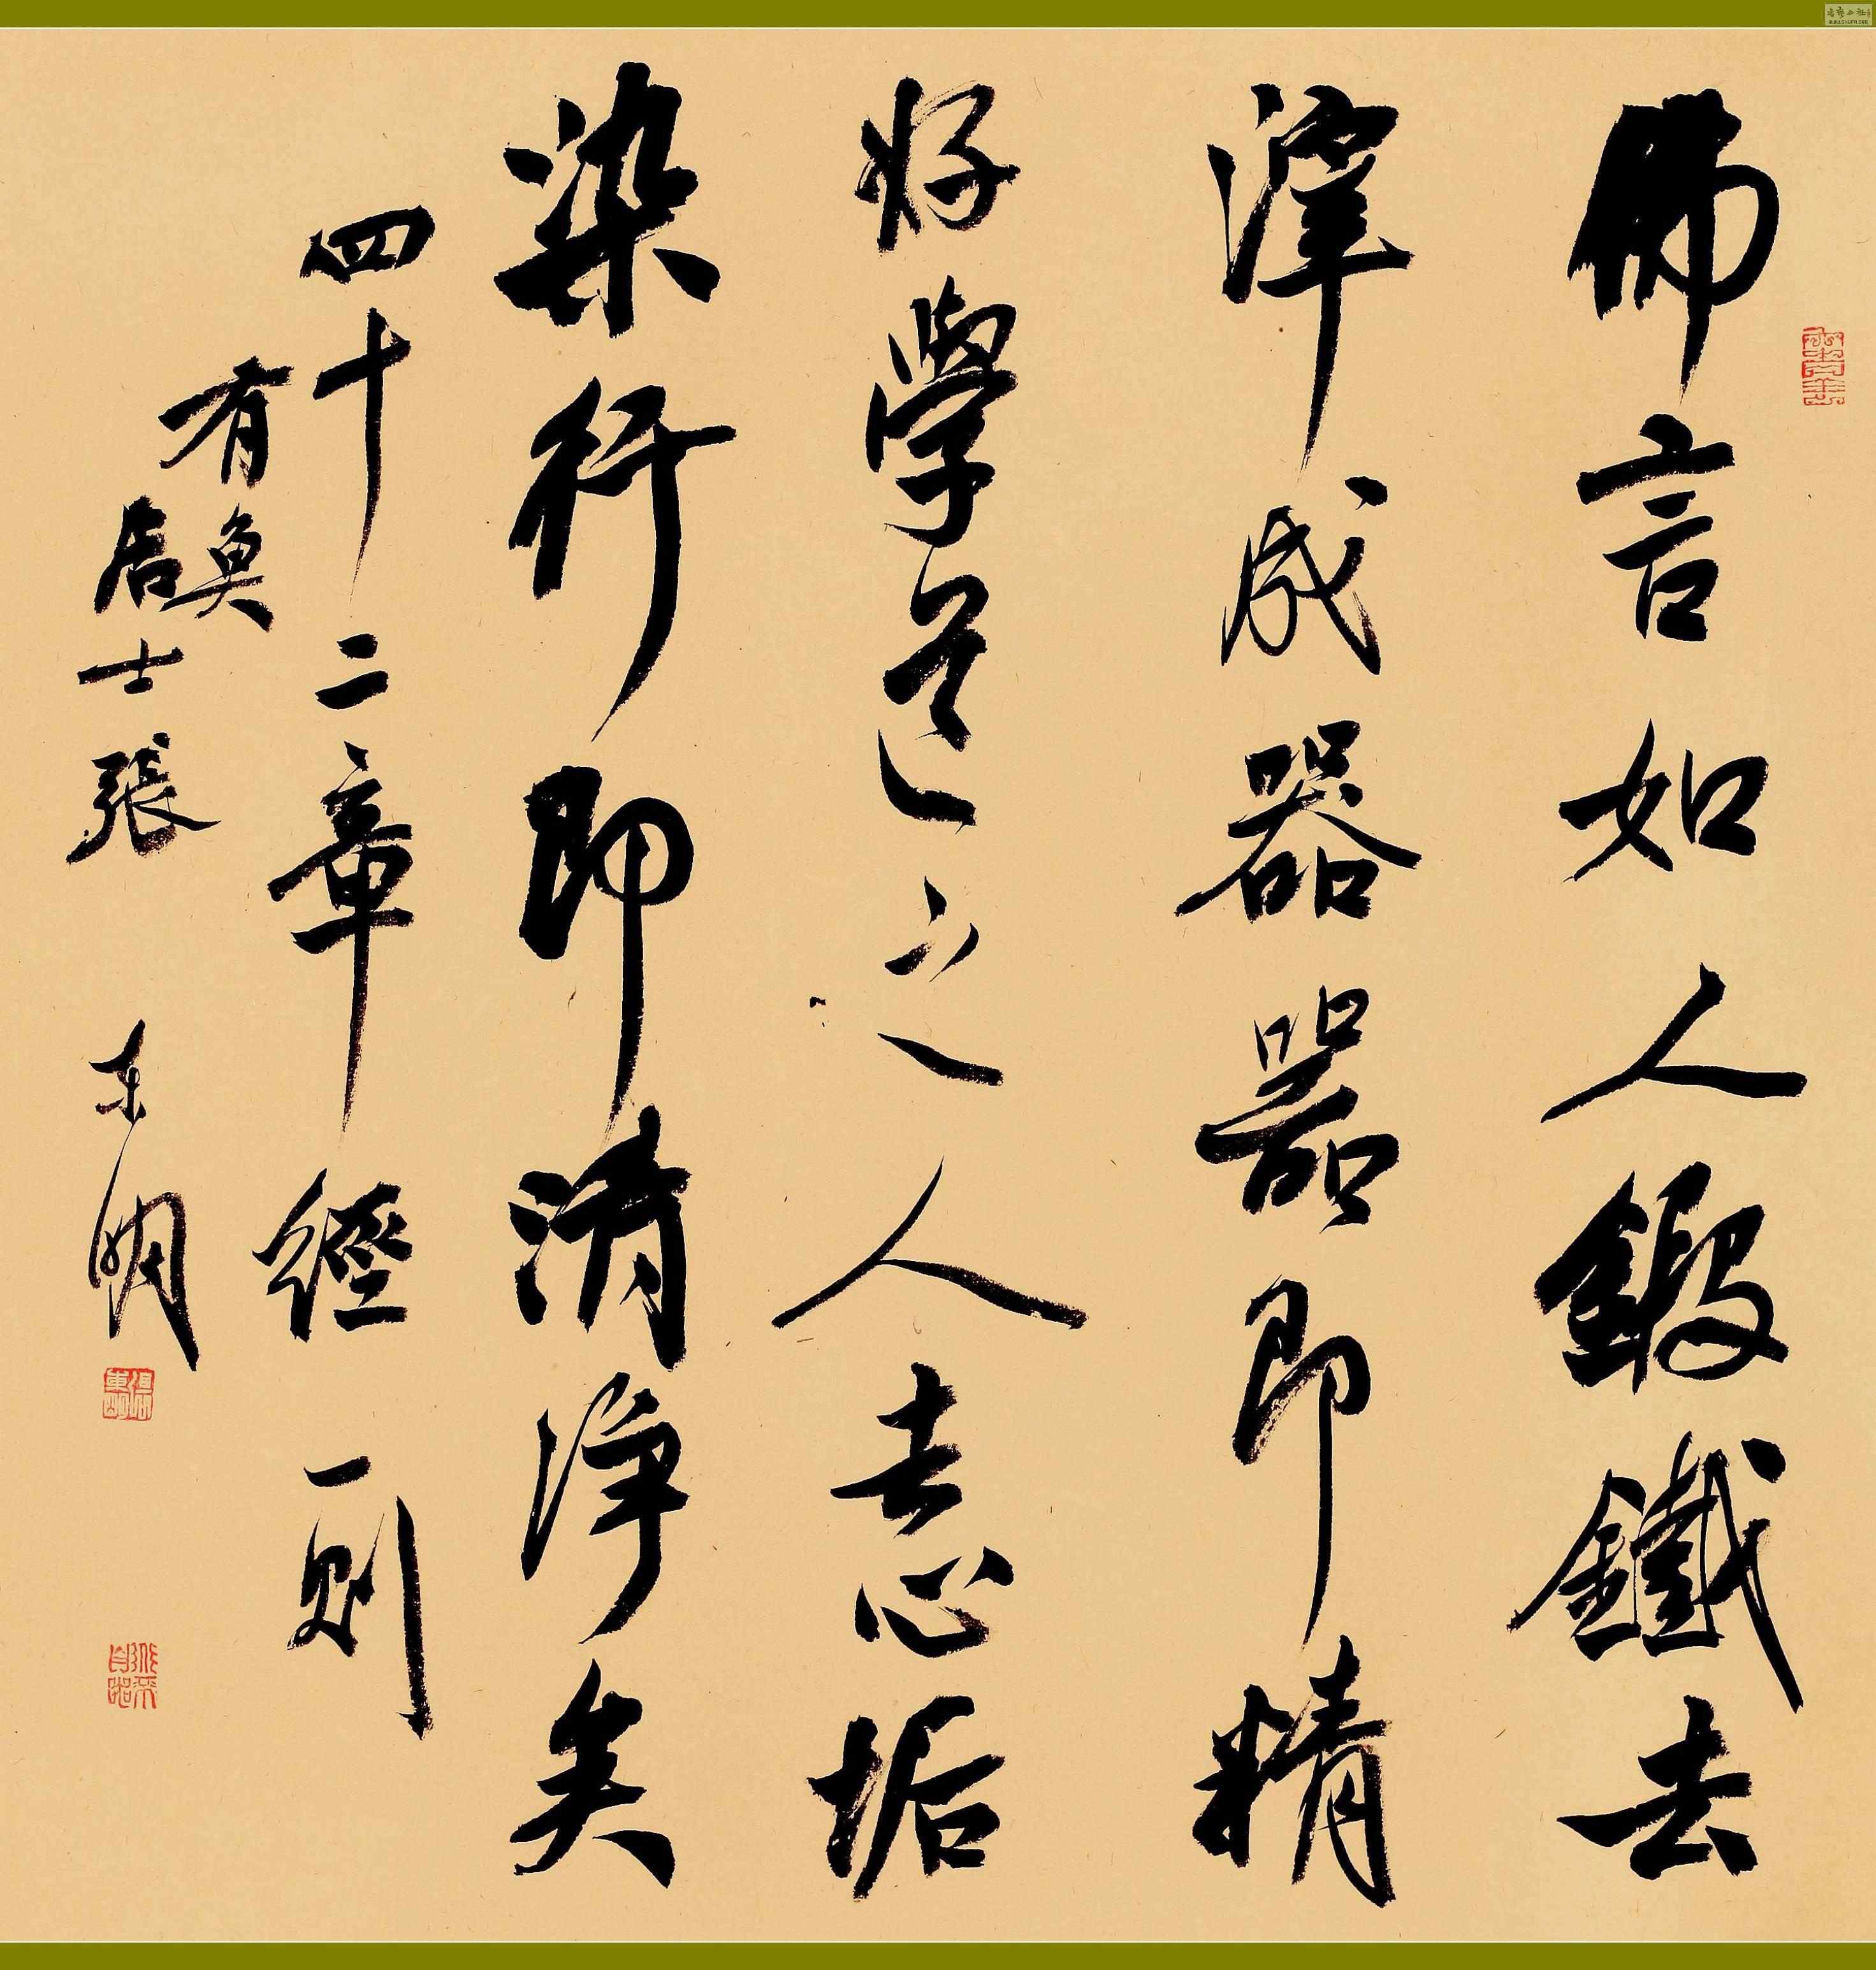 佛言如人鍛鐵去
滓成器器即精
好學道之人去心垢
染行即清淨矣
四十二章經一則
有魚
居士張東明
WWW.SHUFA.ORG